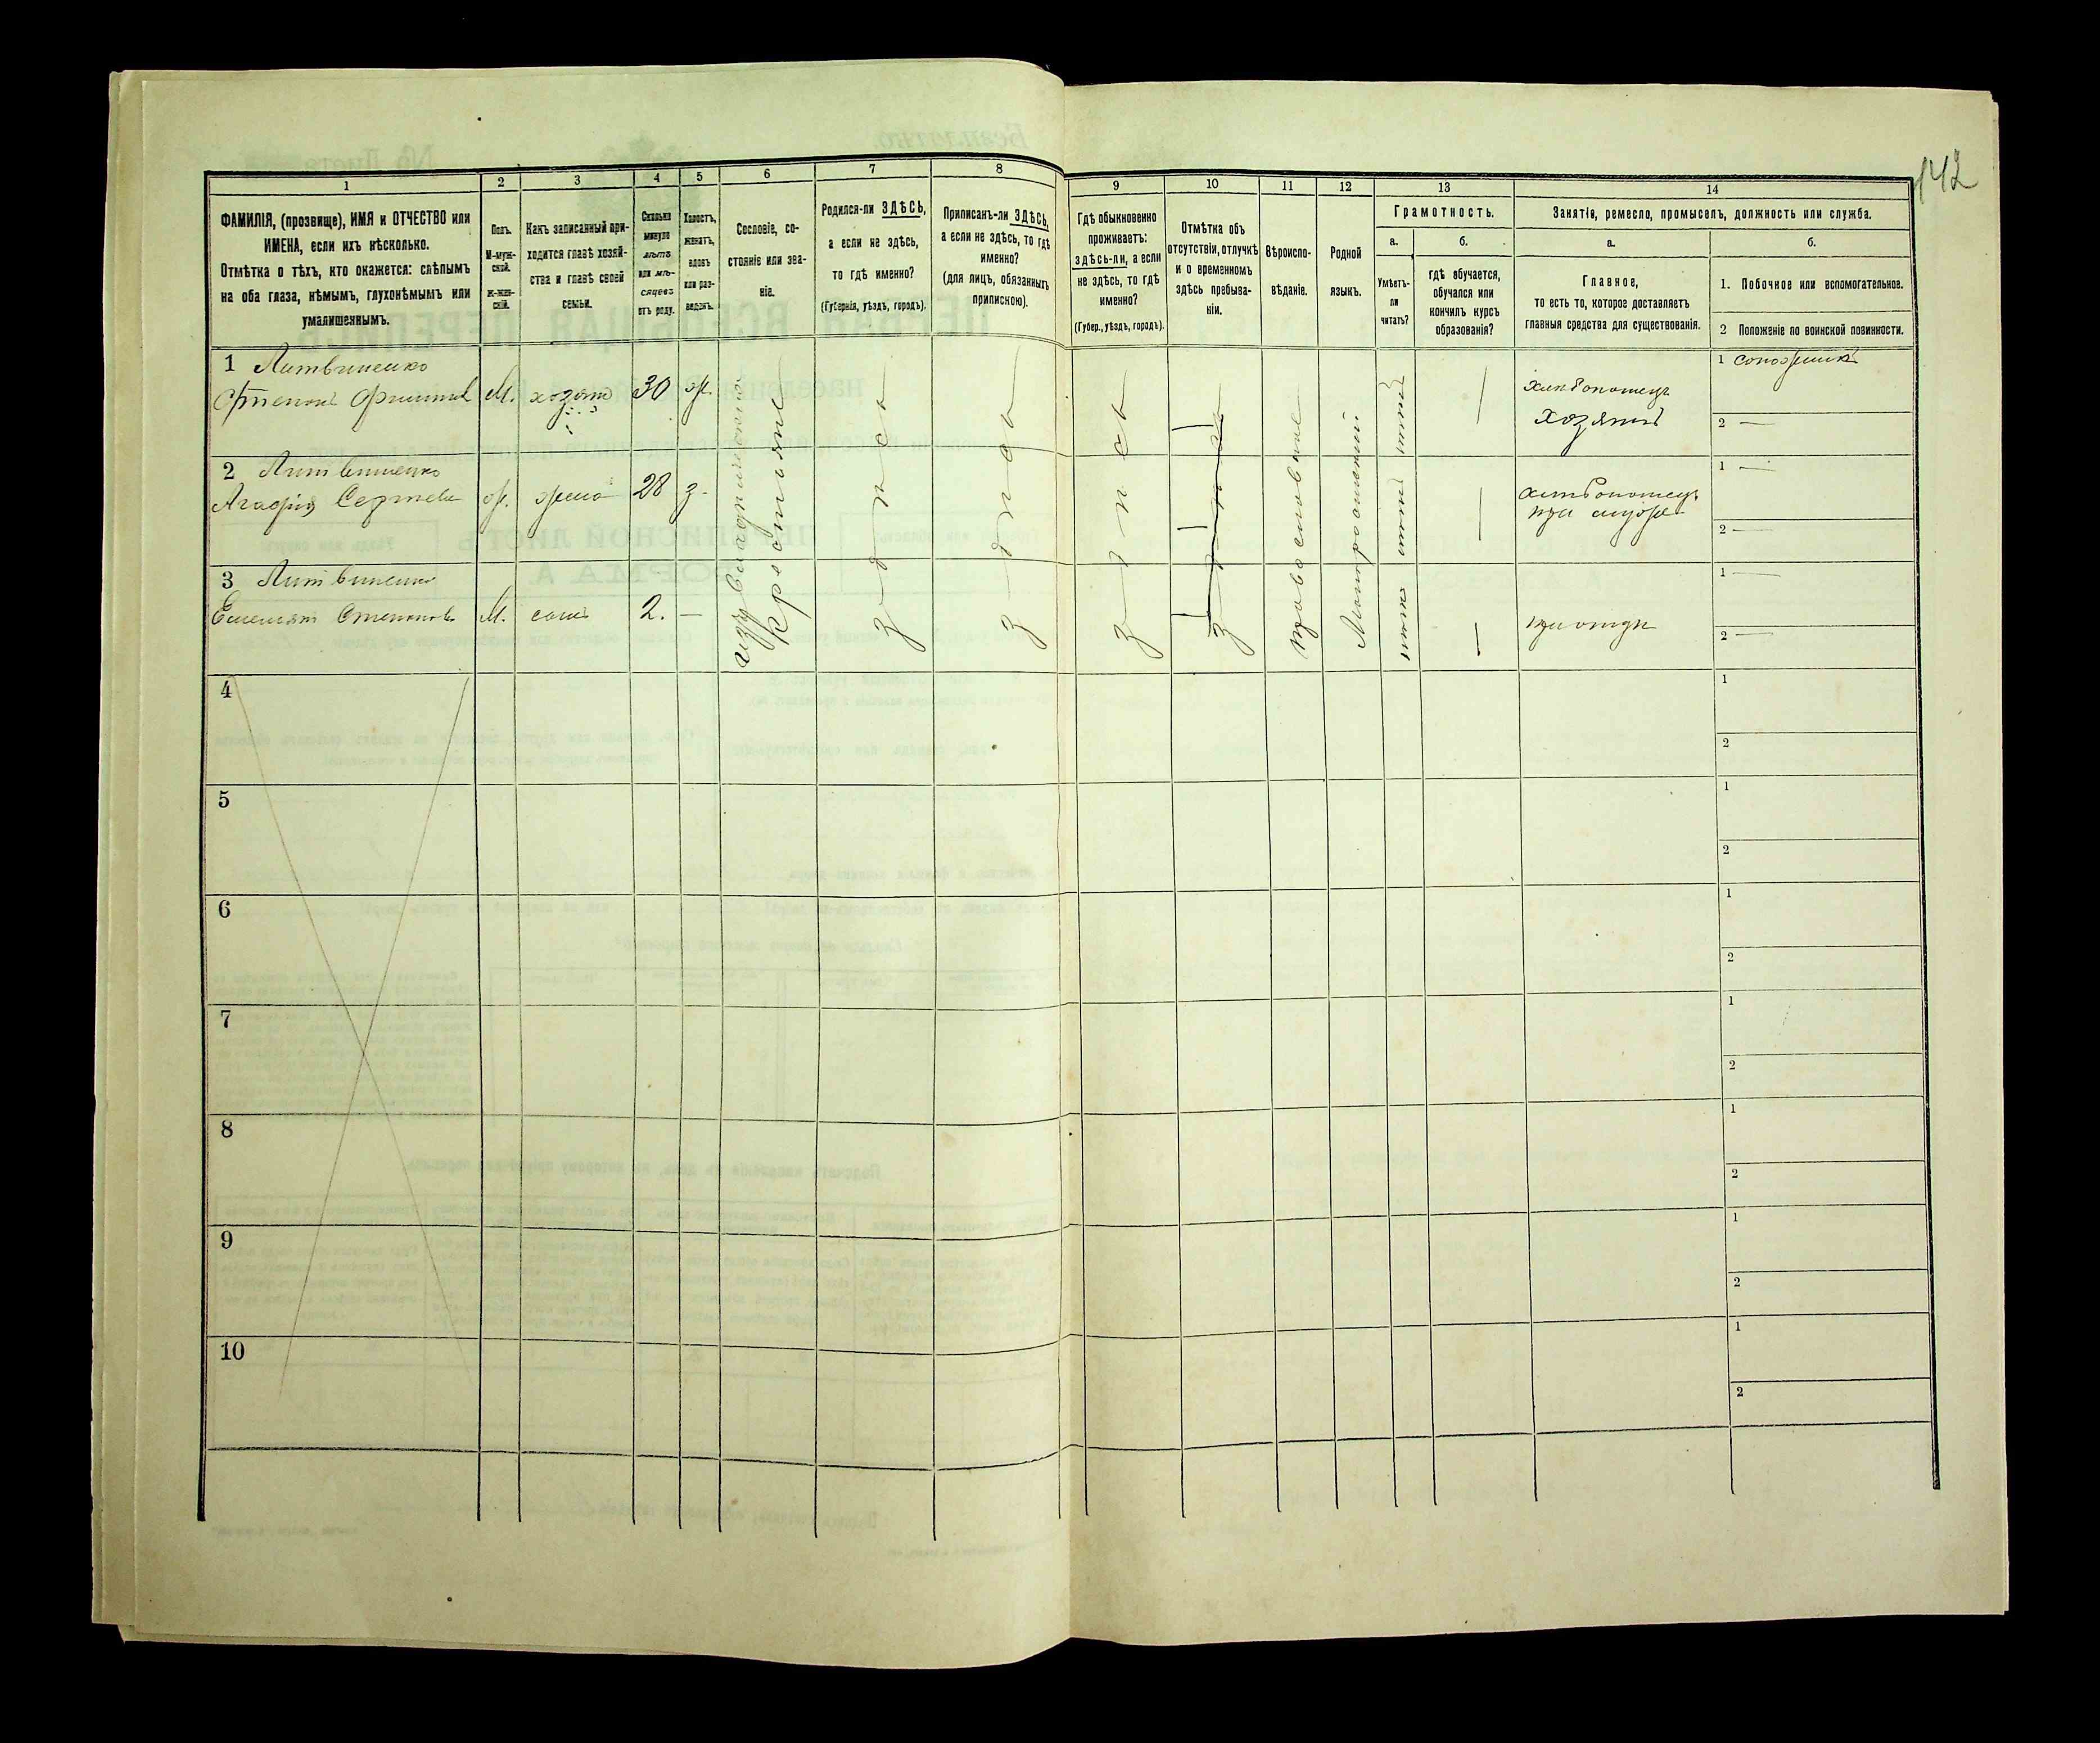 142
1
2
3
4
5
6
7
8
9
10
11
12
13
14
ФАМИЛІЯ, (прозвище), ИМЯ и ОТЧЕСТВО или
ИМЕНА, если ихъ нѣсколько.
Отмѣтка о тѣхъ, кто окажется: слѣпымъ
на оба глаза, нѣмымъ, глухонѣмымъ или
умалишеннымъ.
Полъ.
М-муж-
ской.
ж-жен-
скій.
Какъ записанный при-
ходится главѣ хозяй-
ства и главѣ своей
семьи.
Сколько
минуло
лѣтъ
или мѣ-
сяцевъ
отъ роду.
Холостъ,
женатъ,
вдовъ
или раз-
веденъ.
Сословіе, со-
стояніе или зва-
ніе.
Родился-ли ЗДѢСЬ,
а если не здѣсь,
то гдѣ именно?
(Губернія, уѣздъ, городъ).
Приписанъ-ли ЗДѢСЬ,
а если не здѣсь, то гдѣ
именно?
(для лицъ, обязанныхъ
припискою).
Гдѣ обыкновенно
проживаетъ:
здѣсь-ли, а если
не здѣсь, то гдѣ
именно?
(Губер., уѣздъ, городъ).
Отмѣтка объ
отсутствіи, отлучкѣ
и о временномъ
здѣсь пребыва-
ніи.
Вѣроиспо-
вѣданіе.
Родной
языкъ.
Грамотность.
а.
Умѣетъ-
ли
читать?
б.
гдѣ обучается,
обучался или
кончилъ курсъ
образованія?
Занятіе, ремесло, промыселъ, должность или служба.
а.
Главное,
то есть то, которое доставляетъ
главныя средства для существованія.
б.
1. Побочное или вспомогательное.
2 Положеніе по воинской повинности.
1 Литвиненко
М.
хозяинъ
30
ж.
хозяинъ
1
2 —
2 Литвиненко
Агафія Сергѣева
ж.
жена
28
з.
при мужѣ
1 —
2 —
3 Литвиненко
Емельянъ Степановъ
М.
сынъ
2.
—
—
при отцѣ
1 —
2 —
крестьяне
здѣсь
здѣсь
здѣсь
здѣсь
православные
Малоросскій
4
1
2
5
1
2
6
1
2
7
1
2
8
1
2
9
1
2
10
1
2